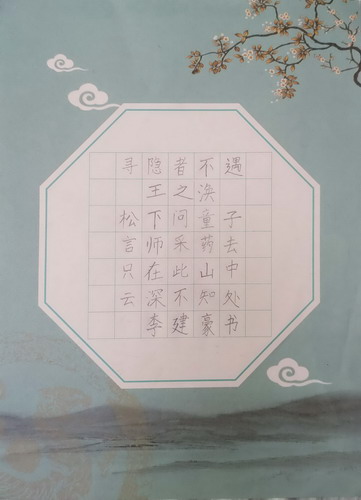 寻隐者不遇
王之涣
松下问童子
言师采药去
只在此山中
云深不知处
李建豪书